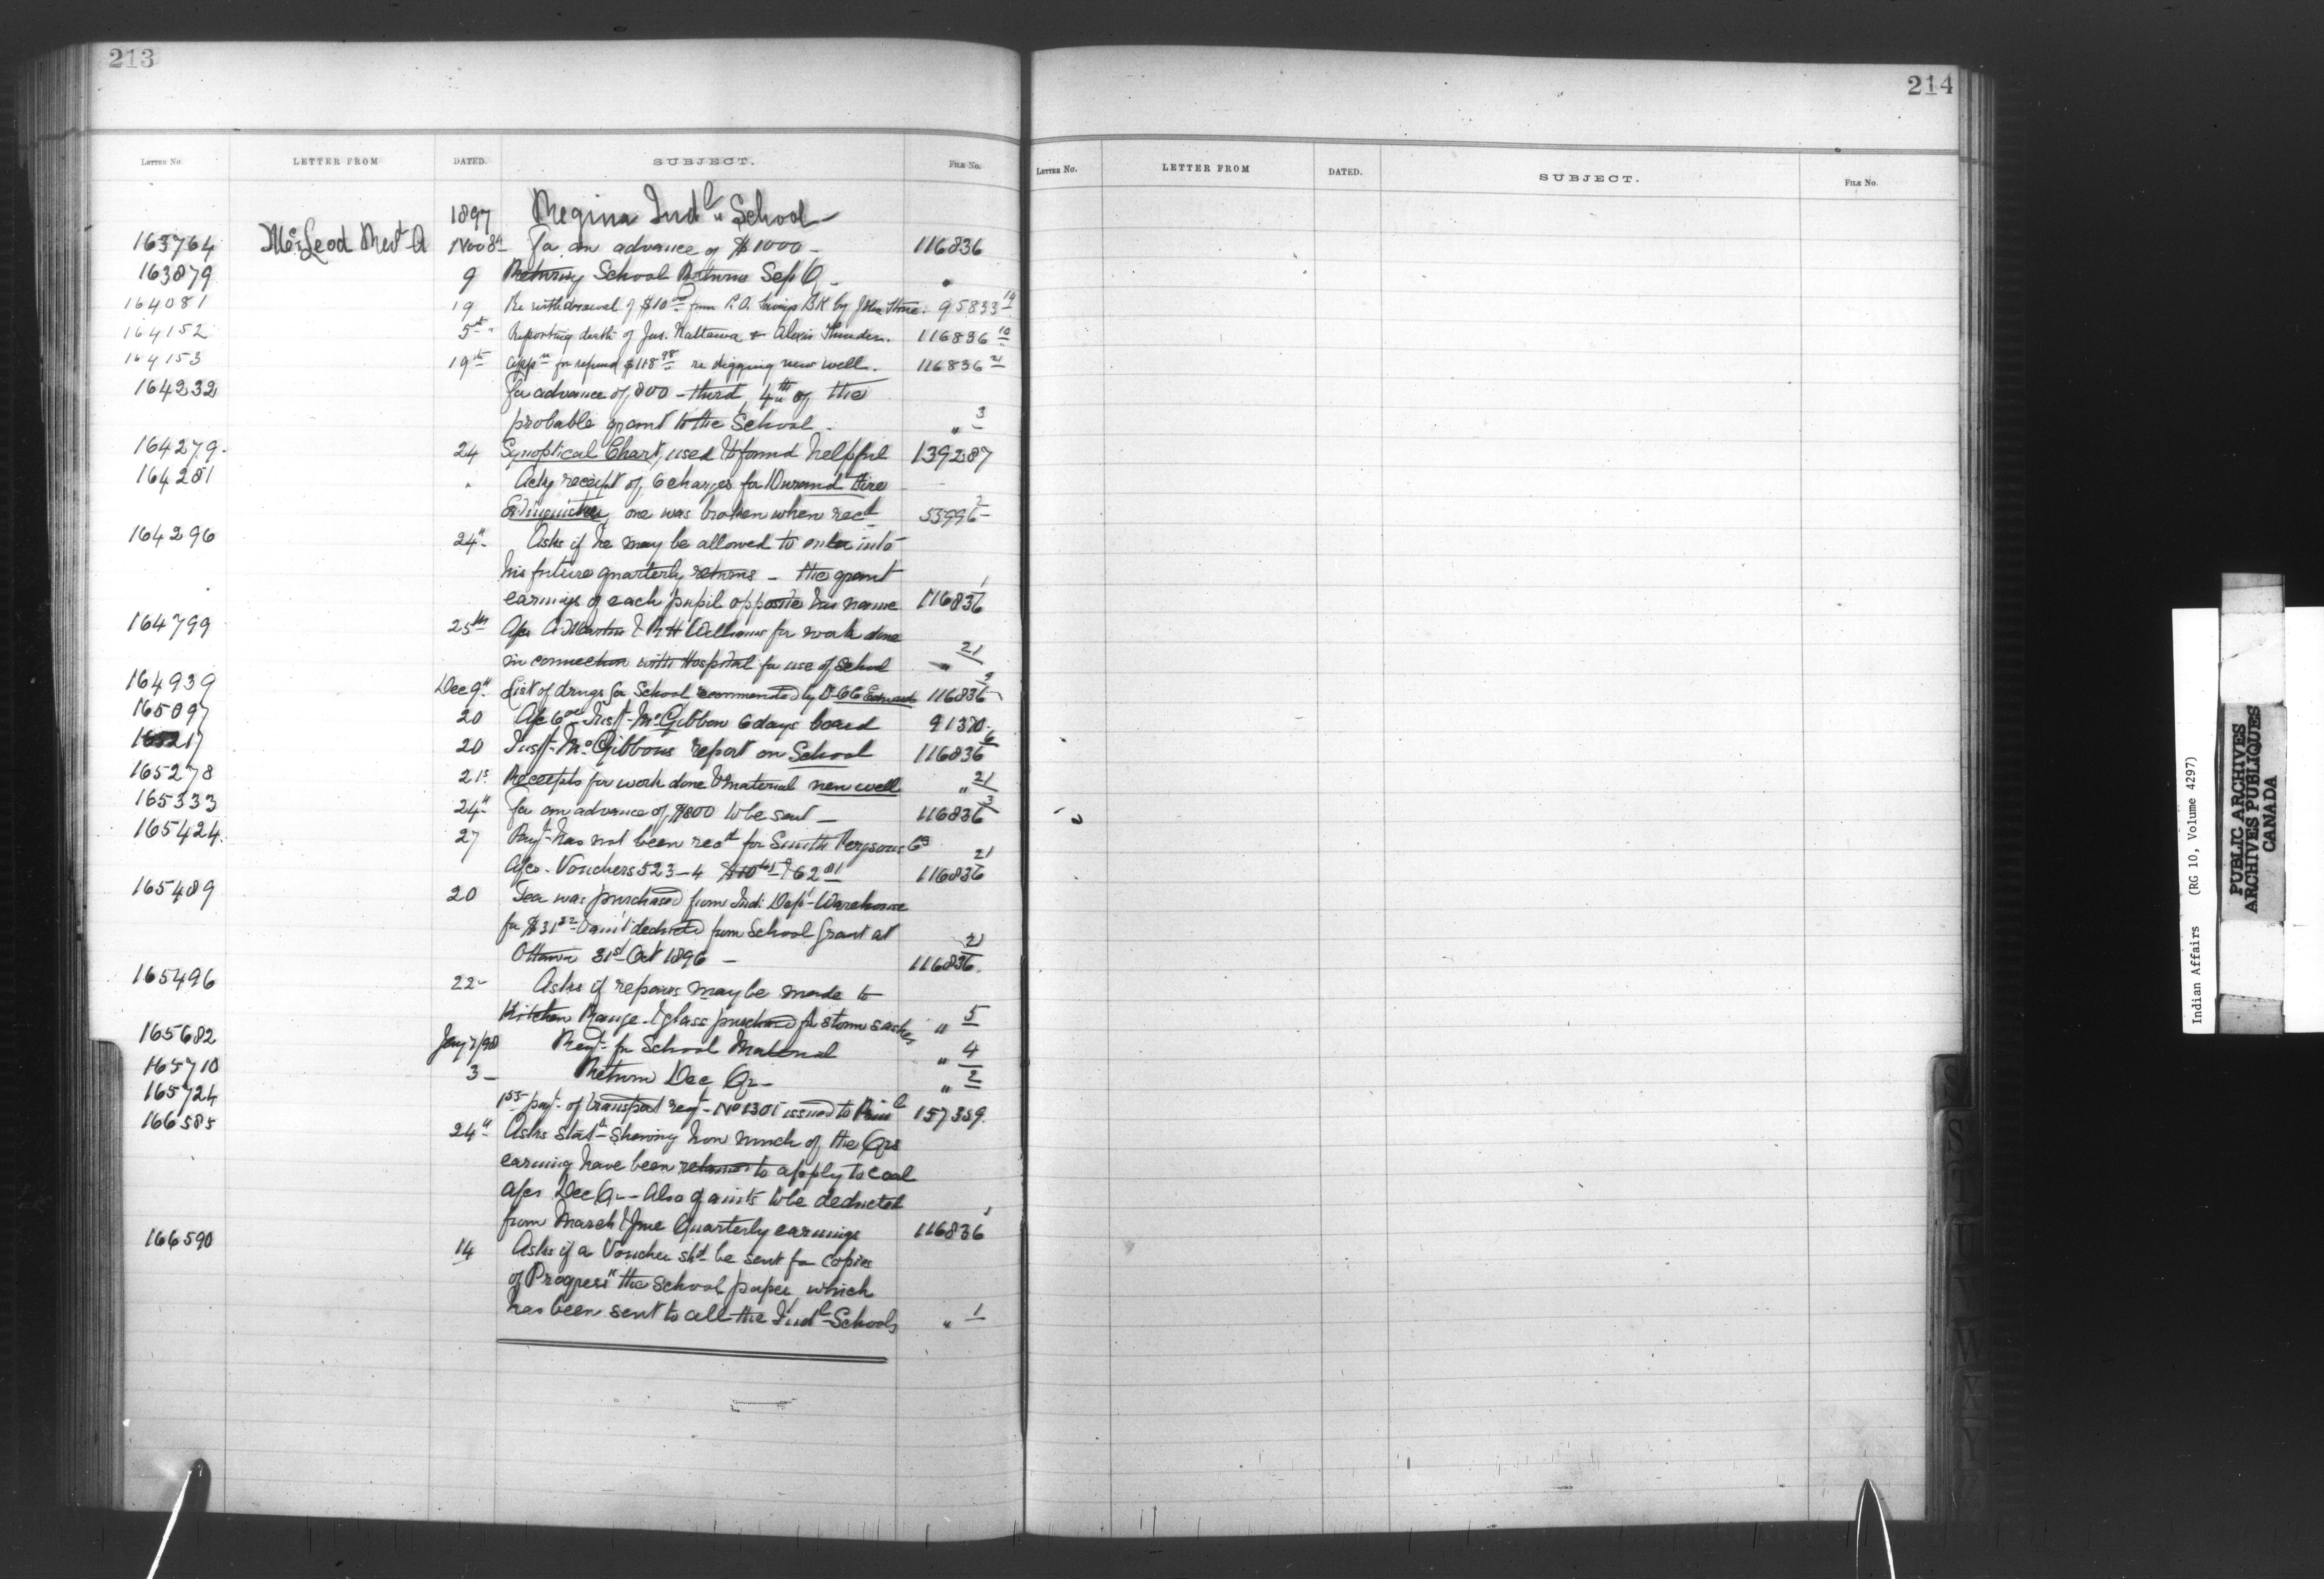 213
Letter No. LETTER FROM DATED. SUBJECT. File No.
1897 Regina Indl School
163764 McLeod Revd A Nov 8th for an advance of $1000 - 116836
163879 9 School Returns Sep Q - "
164081 19 Re withdrawal of $10.00 from P.O. Savings Bk by John Stone. 95833 14
164152 5th " Reporting death of Jas. & Alexis Thunder. 116836 10
164153 19th Appn for refund $118 98 re digging new well. 116836 21
164232 for advance of 800 - third, 4th of the
probable grant to the School. " 3
164279. 24 Synoptical Chart, used & found helpful 139287
164281 " Ackg receipt of 6 charges for Durand Fire
Extinguisher, one was broken when recd 53996-2
164296 24th Asks if he may be allowed to enter into
his future quarterly returns - the grant
earnings of each pupil opposite his name 116836 1
164799 25th Afc A. Martin & R H Williams for work done
in connection with Hospital for use of School " 21
164939 Dec 9th List of drugs for School recommended by O C Edwards 116836
165097 20 Inst McGibbon 6 days board 91370.
165217 20 Inst McGibbons report on School 116836 6
165278 21st Receipts for work done & material new well " 21
165333 24th for an advance of $800 to be sent - 116836 3
165424. 27 Payt has not been recd for Smith Ferguson Co
Afcs. Vouchers 523-4 & 62 01 116836 21
165489 20 Tea was purchased from Ind: Dept Warehouse
for $31 32 & amt deducted from School Grant at
Ottawa 31st Oct 1896 - 116836. 21
165496 22 - Asks if repairs may be made to
Kitchen Range. & glass purchased for storm sashes " 5
165682 Jany 7/98 Reqt for School Material " 4
165710 3 - Return Dec Qr - " 2
165724 1st part of transport reqt - No 1301 issued to Prinl 157359.
166585 24th Asks Statt Shewing how much of the Qrs
earning have been retained to apply to coal
afcs Dec Qr - Also of amts to be deducted
from March & June Quarterly earnings 116836 1
166590 14 Asks if a Voucher shd be sent for copies
of "Progress" the school paper, which
has been sent to all the Indl Schools " 1
214
Letter No. LETTER FROM DATED. SUBJECT. File No.
S
T
U
V
W
Y
Indian Affairs (RG 10, Volume 4297)
PUBLIC ARCHIVES
ARCHIVES PUBLIQUES
CANADA